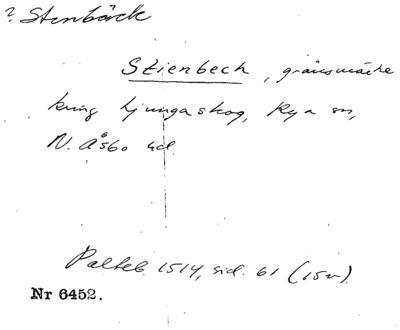 ? Stenbäck
Stienbech, gränsmärke
kring Ljungaskog, Rya sn,
N. Åsbo hd.
Palteb. 1514, sid. 61 (15v).
Nr 6452.